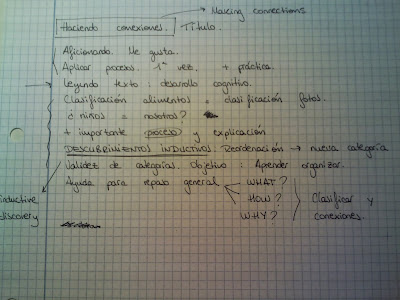 Making connections
Haciendo conexiones. Título.
Aficionando. Me gusta.
Aplicar proceso. 1ª vez. + práctica.
Leyendo texto: desarrollo cognitivo.
Clasificación alimentos = clasificación fotos.
¿ niños = nosotros?
+ importante proceso y explicación
DESCUBRIMIENTOS INDUCTIVOS. Reordenación → nueva categoría
Validez de categorías. Objetivo: Aprender organizar.
Ayuda para repaso general
WHAT?
HOW?
WHY?
Clasificar y
conexiones.
inductive
discovery